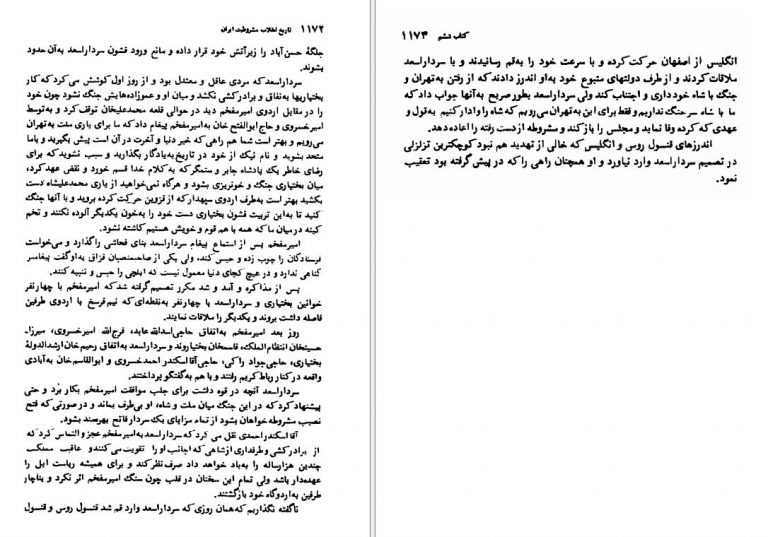 ۱۱۷۲ تاریخ انقلاب مشروطیت ایران
جلگهٔ حسن‌آباد را زیر آتش خود قرار داده و مانع ورود قشون سردار اسعد به‌آن حدود
بشوند.
سردار اسعد که مردی عاقل و معتدل بود و از روز اول کوشش می‌کرد که کار
بختیاریها به‌نفاق و برادرکشی نکشد و میان او و عموزاده‌هایش جنگ نشود چون خود
را در مقابل اردوی امیرمفخم دید در حوالی قلعه محمدعلیخان توقف کرد و به‌توسط
امیرخسروی و حاج ابوالفتح خان به‌امیرمفخم پیغام داد که ما برای یاری ملت به‌تهران
می‌رویم و بهتر است شما هم راهی که خیر دنیا و آخرت در آن است پیش بگیرید و باما
متحد بشوید و نام نیک از خود در تاریخ به‌یادگار بگذارید و سبب نشوید که برای
رضای خاطر یک پادشاه جابر و ستمگر که به کلام خدا قسم خورد و نقض عهد کرد،
میان بختیاری جنگ و خونریزی بشود و هرگاه نمی‌خواهید از یاری محمدعلیشاه دست
بکشید بهتر است به‌طرف اردوی سپهدار که از قزوین حرکت کرده بروید و با آنها جنگ
کنید تا به‌این تربیت قشون بختیاری دست خود را به‌خون یکدیگر آلوده نکنند و تخم
کینه در میان ما که همه با هم قوم و خویش هستیم کاشته نشود.
امیرمفخم پس از استماع پیغام سردار اسعد بنای فحاشی را گذارد و می‌خواست
فرستادگان را چوب زده و حبس کند، ولی یکی از صاحبمنصبان قزاق به‌او گفت پیغامبر
گناهی ندارد و در هیچ کجای دنیا معمول نیست که ایلچی را حبس و تنبیه کنند.
پس از مذاکره و آمد و شد مکرر تصمیم گرفته شد که امیرمفخم با چهارنفر
خوانین بختیاری و سردار اسعد با چهارنفر به‌نقطه‌ای که نیم فرسخ با اردوی طرفین
فاصله داشت بروند و یکدیگر را ملاقات نمایند.
روز بعد امیرمفخم به‌اتفاق حاجی اسدالله عابد، فرج‌الله امیرخسروی، میرزا–
حسینخان انتظام‌الملک، قاسمخان بختیاروند و سردار اسعد به اتفاق رحیم خان ارشدالدولهٔ
بختیاری، حاجی جواد راکی، حاجی آقا اسکندر احمد خسروی و ابوالقاسم خان به‌آبادی
واقعه در کنار رباط کریم رفتند و با هم به‌گفتگو پرداختند.
سردار اسعد آنچه در قوه داشت برای جلب موافقت امیرمفخم بکار بُرد و حتی
پیشنهاد کرد که در این جنگ میان ملت و شاه، او بی‌طرف بماند و در صورتی که فتح
نصیب مشروطه خواهان بشود از تمام مزایای یک سردار فاتح بهره‌مند بشود.
آقا اسکندر احمدی نقل می کرد که سردار اسعد به‌امیرمفخم عجز و التماس کرد که
از برادرکشی و طرفداری از شاهی که اجانب او را تقویت می‌کنند و عاقبت مملکت
چندین هزار ساله را به‌باد خواهد داد صرف نظر کند و برای همیشه ریاست ایل را
عهده‌دار باشد ولی تمام این سخنان در قلب چون سنگ امیرمفخم اثر نکرد و بناچار
طرفین به‌اردوگاه خود بازگشتند.
ناگفته نگذاریم که همان روزی که سردار اسعد وارد قم شد قنسول روس و قنسول
کتاب ششم ۱۱۷۳
انگلیس از اصفهان حرکت کرده و با سرعت خود را به‌قم رسانیدند و با سردار اسعد
ملاقات کردند و از طرف دولتهای متبوع خود به‌او اندرز دادند که از رفتن به‌تهران و
جنگ با شاه خودداری و اجتناب کند ولی سردار اسعد بطور صریح به‌آنها جواب داد که
ما با شاه سر جنگ نداریم و فقط برای این به‌تهران می‌رویم که شاه را وادار کنیم به‌قول و
عهدی که کرده وفا نماید و مجلس را باز کند و مشروطه از دست رفته را اعاده دهد.
اندرزهای قنسول روس و انگلیس که خالی از تهدید هم نبود کوچکترین تزلزلی
در تصمیم سردار اسعد وارد نیاورد و او همچنان راهی را که در پیش گرفته بود تعقیب
نمود.